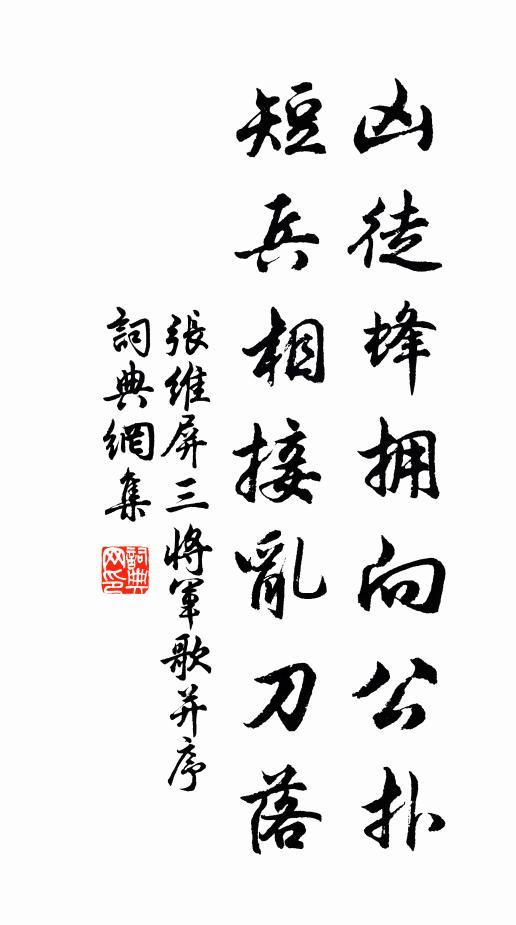 凶徒蜂拥向公扑
短兵相接亂刀落
張維屏三將軍歌并序
詞典網集
詞典网印